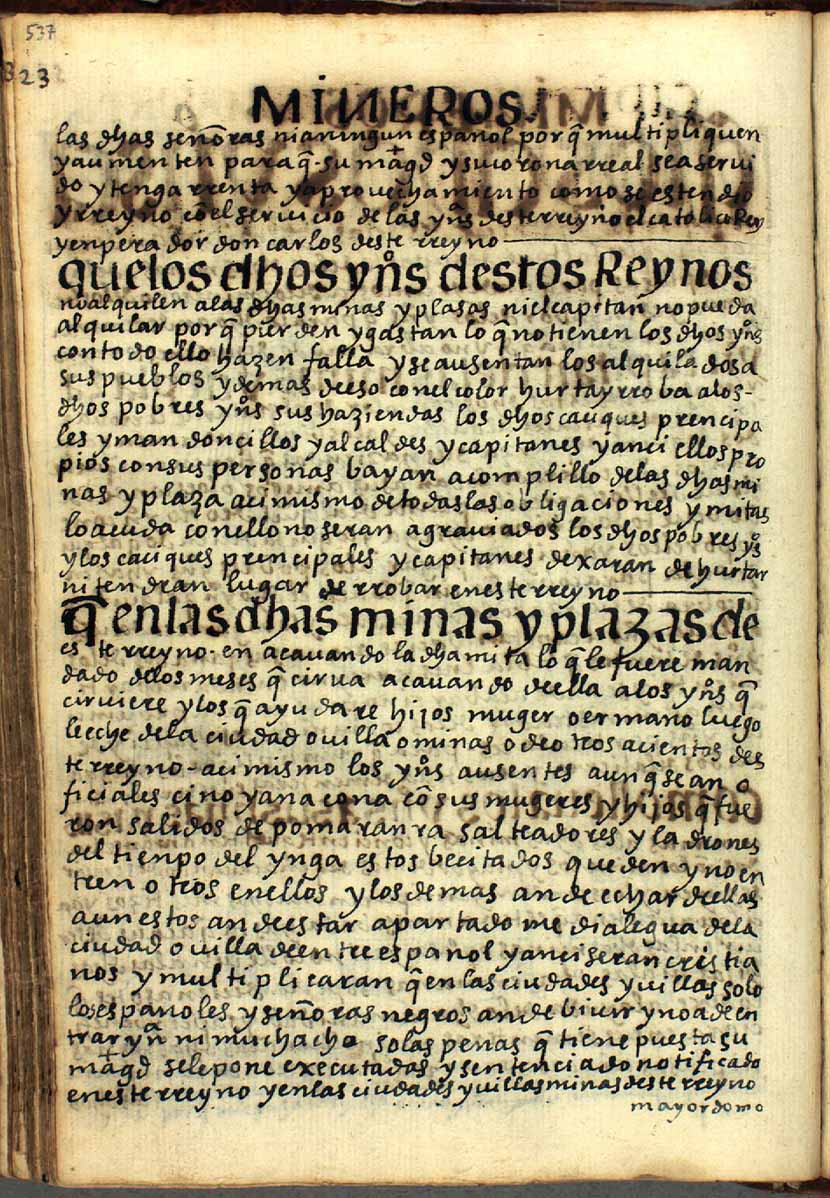 537
523
MINEROS
las dhas señoras ni a ningun español por q̃ multipliquen
y aumenten para q̃ su mag̃d y su corona rreal sea servi
do y tenga rrenta y aprovechamiento como se estendio
y rreyno cõ el servicio de las yn̊s deste rreyno el catolico Rey
y enperador don carlos deste rreyno
que los dhos yn̊s destos Reynos
no alquilen a las dhas minas y plasas ni el capitan no pueda
alquilar por q̃ pierden y gastan lo q̃ no tienen los dhos yn̊s
con todo ello hazen falla y se ausentan los alquilados a
sus pueblos y demas deeso con el color hurta y rroba a los
dhos pobres yn̊s sus haziendas los dhos caciques prencipa
les y mandoncillos y alcaldes y capitanes y anci ellos pro
pios con sus personas bayan a complillo de las dhas mi
nas y plaza acimismo de todas las obligaciones y mitas
lo acuda con ello no seran agraviados los dhos pobres yn̊s
y los caciques prencipales y capitanes dexaran de hurtar
ni tendran lugar de rrobar en este rreyno
q̃ en las dhas minas y plazas de
este rreyno en acavando la dha mita lo q̃ le fuere man
dado dellos meses q̃ cirva acavando deella a los yn̊s q̃
cirviere y los q̃ ayudare hijos muger o ermano luego
le eche de la ciudad o villa o minas o de otros acientos des
te rreyno acimismo los yn̊s ausentes aunq̃ sean o
ficiales cino yanacona cõ sus mugeres y hijos q̃ fue
ron salidos de pomaranra salteadores y ladrones
del tienpo del ynga estos becitados queden y no en
tren otros en ellos y los demas an de echar deellas
aun estos an de estar apartado media legua de la
ciudad o villa de entre español y anci seran cristia
nos y multiplicaran q̃ en las ciudades y villas solo
los españoles y señoras negros an de bivir y no a de en
trar yn̊ ni muchacho so las penas q̃ tiene puesta su
mag̃d se le pone executadas y sentenciado notificado
en este rreyno y en las ciudades y villas minas deste rreyno
mayordomo